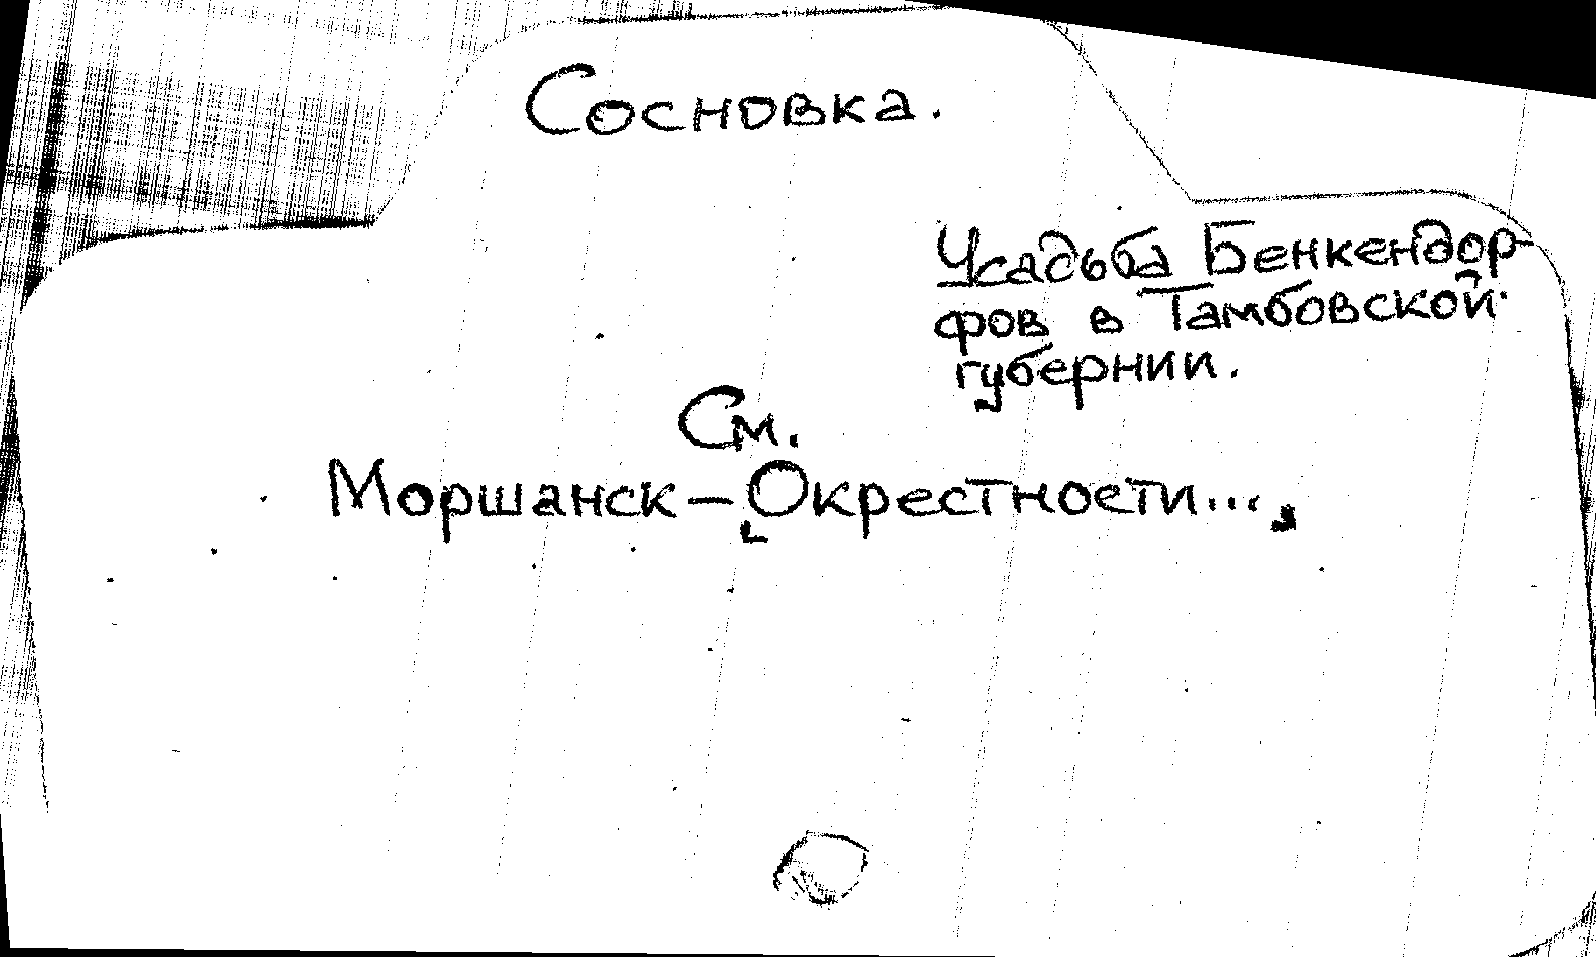 Сосновка.
Усадьба Бенкендор-
фов в Тамбовской
губернии.
См.
Моршанск – Окрестности...